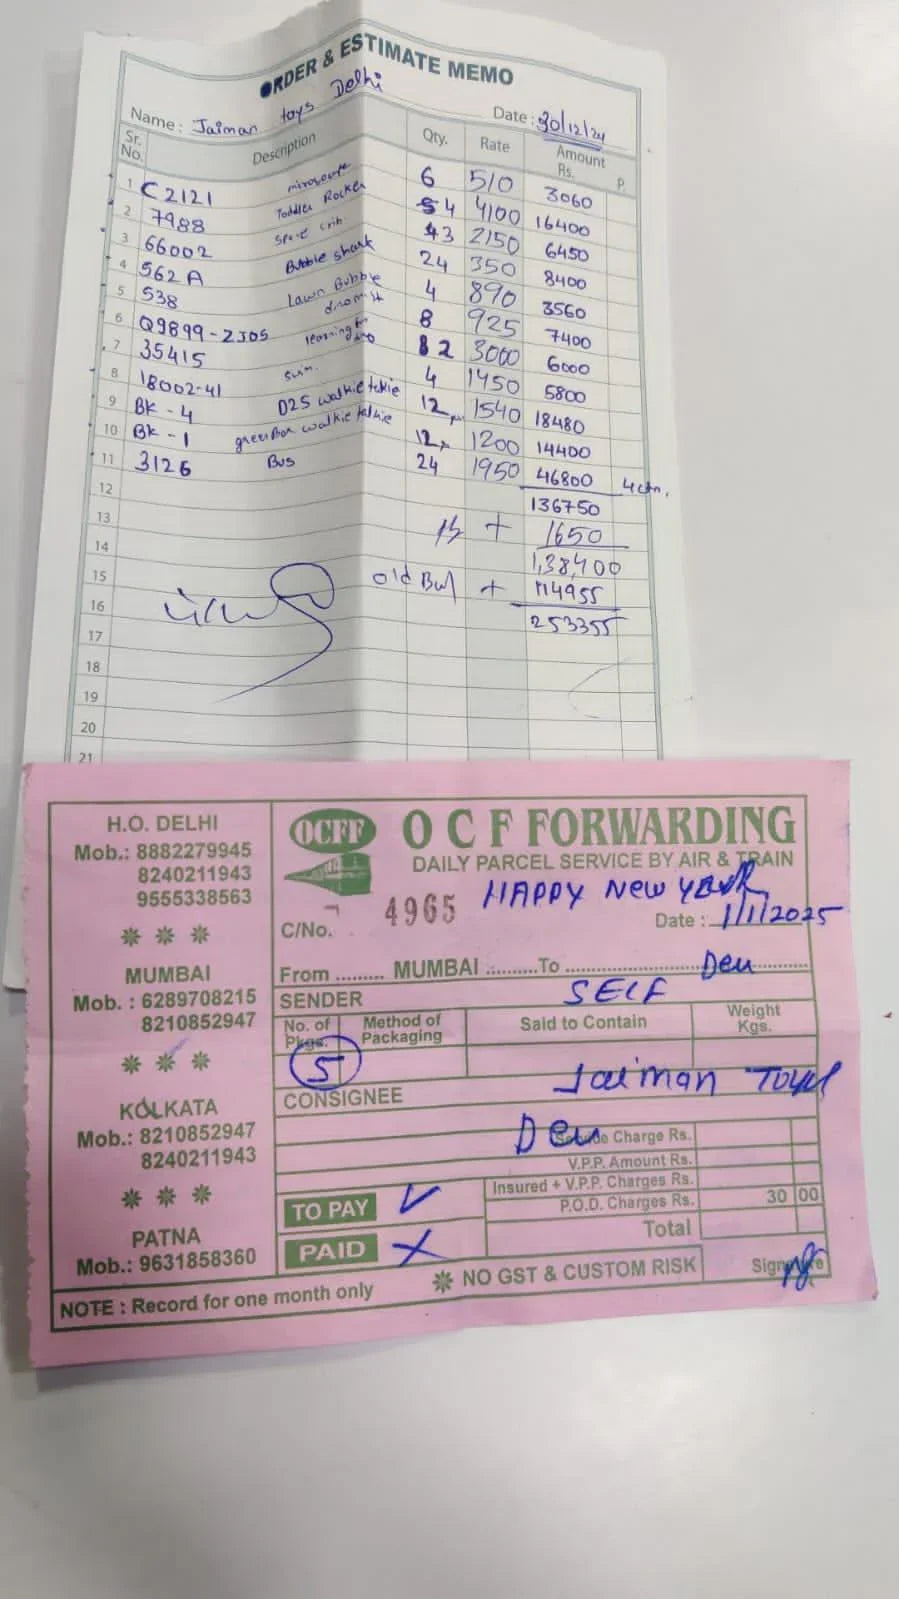 ORDER & ESTIMATE MEMO
Name : Jaiman toys Delhi Date : 30/12/24
Sr. No. Description Qty. Rate Amount Rs. P.
1 C2121 microwave 6 510 3060
2 7988 Toddler Rocker 4 4100 16400
3 66002 3 2150 6450
4 562A Bubble shark 24 350 8400
5 538 Lawn Bubble 4 890 3560
6 Q9899-2J05 8 925 7400
7 35415 learning 2 3000 6000
8 18002-41 4 1450 5800
9 BK - 4 D25 walkie talkie 12 1540 18480
10 BK - 1 green Box walkie talkie 12 1200 14400
11 3126 Bus 24 1950 46800 4 ctn.
12 136750
13 + 1650
14 1,38,400
15 old Bal + 114955
16 253355
17
18
19
20
21
H.O. DELHI
Mob.: 8882279945
8240211943
9555338563
MUMBAI
Mob. : 6289708215
8210852947
KOLKATA
Mob.: 8210852947
8240211943
PATNA
Mob.: 9631858360
OCFF
O C F FORWARDING
DAILY PARCEL SERVICE BY AIR & TRAIN
HAPPY NEW YEAR
C/No. 4965 Date : 1/1/2025
From ......... MUMBAI ..........To ........ Del
SENDER SELF
No. of Pkgs. Method of Packaging Said to Contain Weight Kgs.
5
CONSIGNEE Jaiman Toys
Del
Charge Rs.
V.P.P. Amount Rs.
Insured + V.P.P. Charges Rs.
P.O.D. Charges Rs. 30 00
Total
TO PAY ✓
PAID X
NO GST & CUSTOM RISK
Signature
NOTE : Record for one month only